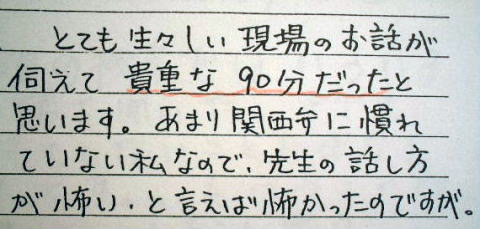 とても生々しい現場のお話が
伺えて 貴重な90分だったと
思います。あまり関西弁に慣れ
ていない私なので、先生の話し方
が怖い、と言えば怖かったのですが。